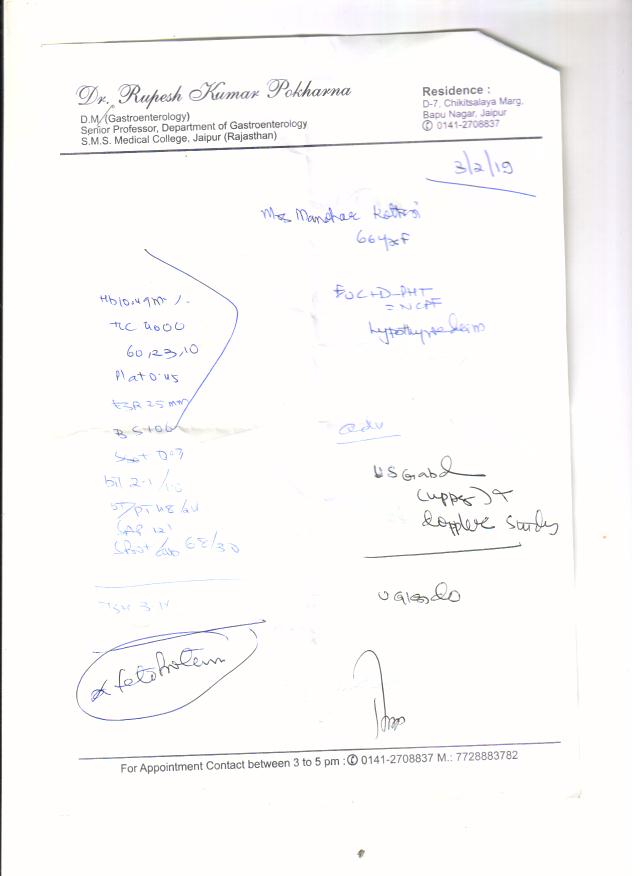 Dr. Rupesh Kumar Pokharna
D.M. (Gastroenterology)
Senior Professor, Department of Gastroenterology
S.M.S. Medical College, Jaipur (Rajasthan)
Residence :
D-7, Chikitsalaya Marg,
Bapu Nagar, Jaipur
✆ 0141-2708837
3/2/19
Mrs Manohar
66yr F
Hb 10.4gm %
TLC 4000
60,23,10
Plat 0.45
ESR 25 mm
BS 100
bil 2.1
OT/PT 48/
SAP 121
68/30
TSH
α fetoprotein
FUC D-PHT
= NCPF
hypothyroidism
adv
USG abd
(upper) &
doppler study
UGI endo
For Appointment Contact between 3 to 5 pm : ✆ 0141-2708837 M.: 7728883782